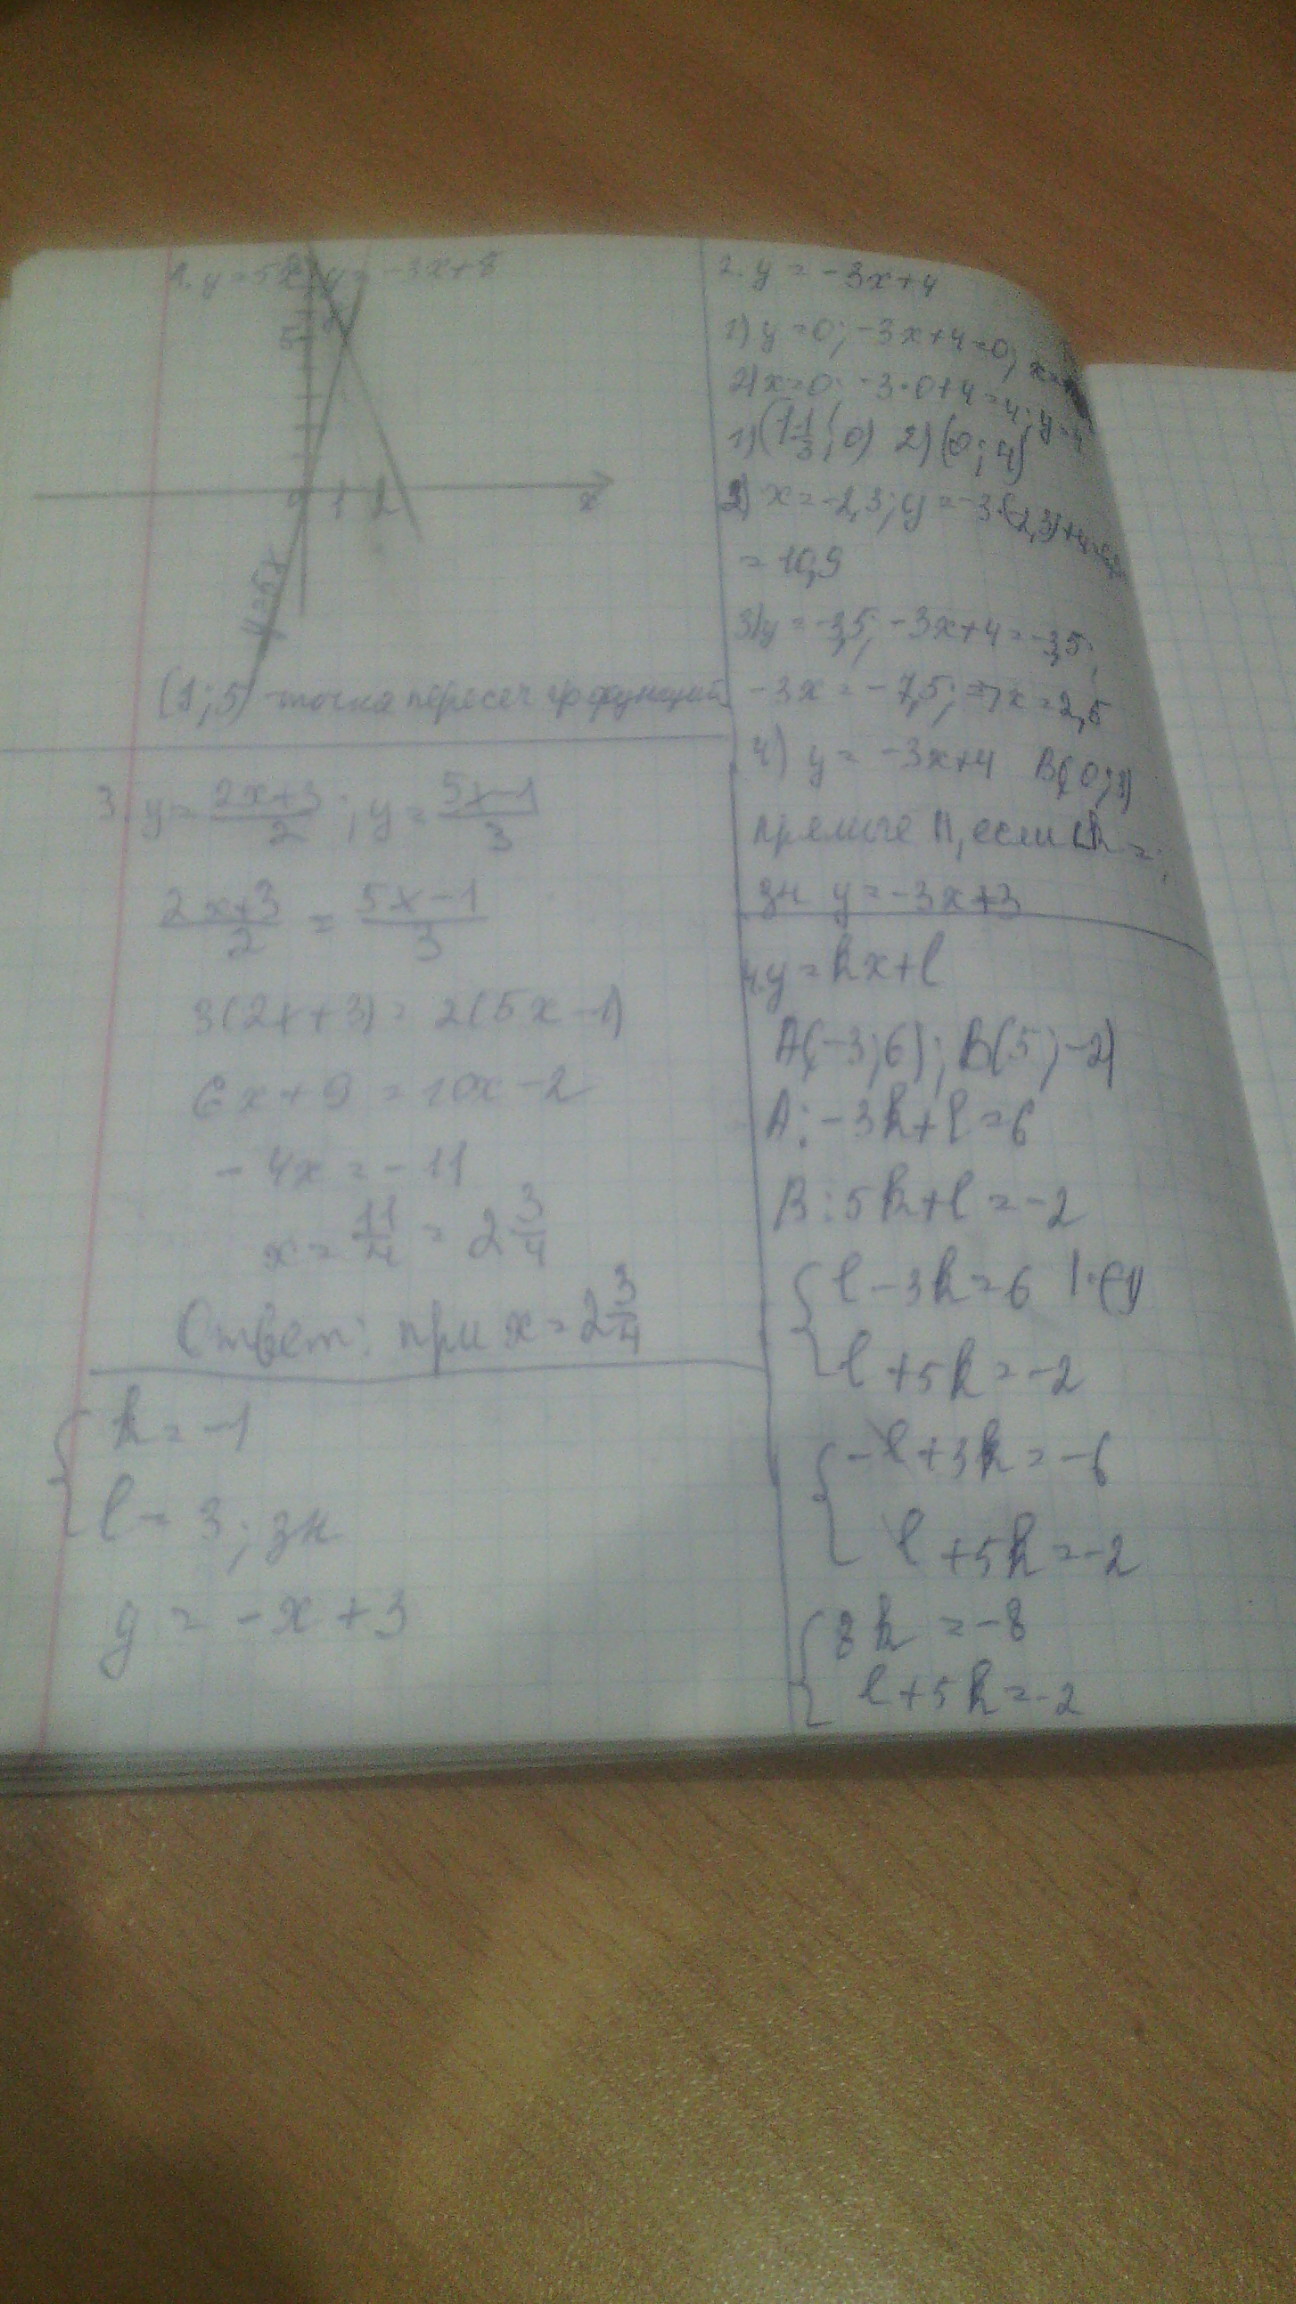 1. y = 5x; y = -3x+8
5
0 1 2 x
y=5x
(1; 5) - точка пересеч гр функций
2. y = -3x+4
1) y = 0; -3x+4=0; x=
2) x=0; -3·0+4=4; y=4
1) (1 1/3; 0) 2) (0; 4)
2) x = -2,3; y = -3·(-2,3)+4=
= 10,9
3) y = -3,5; -3x+4=-3,5;
-3x = -7,5; => x=2,5
4) y = -3x+4 B(0; 3)
прямые ||, если k =
зн y = -3x+3
3. y = (2x+3)/2; y = (5x-1)/3
(2x+3)/2 = (5x-1)/3
3(2x+3) = 2(5x-1)
6x+9 = 10x-2
-4x = -11
x = 11/4 = 2 3/4
Ответ: при x = 2 3/4
4. y = kx+l
A(-3; 6); B(5; -2)
A: -3k+l=6
B: 5k+l=-2
{ l-3k=6 |·(-1)
l+5k=-2
{ -l+3k=-6
l+5k=-2
{ 8k=-8
l+5k=-2
{ k = -1
l = 3; зн
y = -x+3